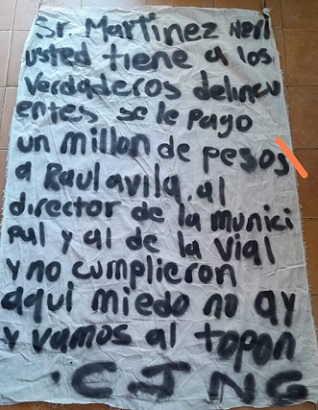 Sr. Martinez Neri
usted tiene a los
verdaderos delincu
entes se le pago
un millon de pesos
a Raul avila, al
director de la munici
pal y al de la Vial
y no cumplieron
aqui miedo no ay
y vamos al topon
CJNG